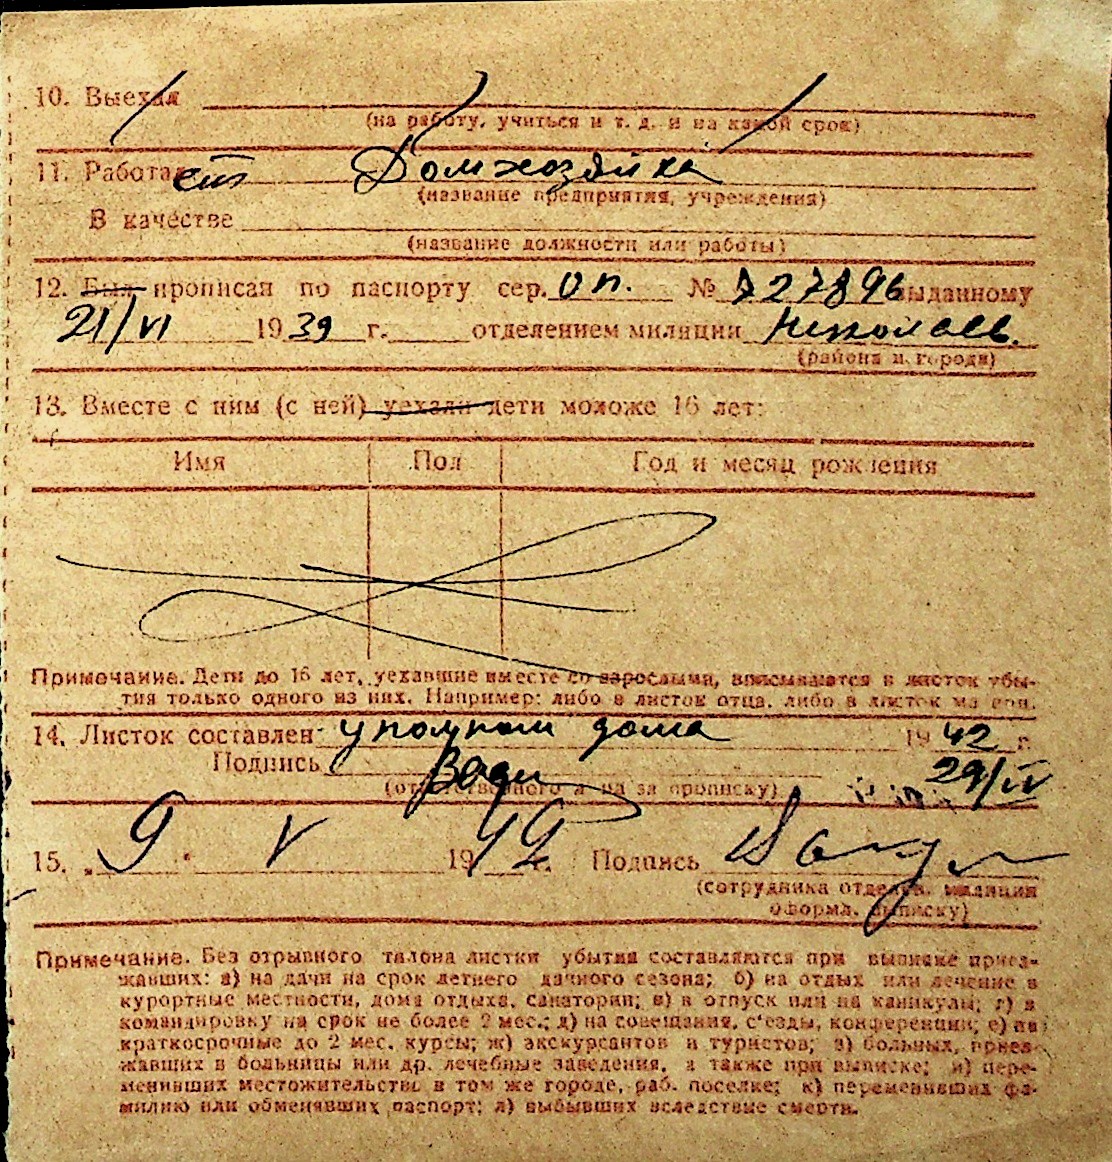 10. Выехал
(на работу, учиться и т. д. и на какой срок)
11. Работает Домхозяйка
(название предприятия, учреждения)
В качестве
(название должности или работы)
12. Был прописан по паспорту сер. ОП. № 727896 выданному
21/VI 1939 г. отделением милиции Николаев.
(района и города)
13. Вместе с ним (с ней) уехали дети моложе 16 лет:
Имя Пол Год и месяц рождения
Примечание. Дети до 16 лет, уехавшие вместе со взрослыми, вписываются в листок убы-
тия только одного из них. Например: либо в листок отца, либо в листок матери.
14. Листок составлен дома 1942 г.
Подпись 29/IV
(ответственного лица за прописку)
15. „9" V 1942 г. Подпись
(сотрудника отделен. милиции
оформл. выписку)
Примечание. Без отрывного талона листки убытия составляются при выписке приез-
жавших: а) на дачи на срок летнего дачного сезона; б) на отдых или лечение в
курортные местности, дома отдыха, санатории; в) в отпуск или на каникулы; г) в
командировку на срок не более 2 мес.; д) на совещания, с'езды, конференции; е) на
краткосрочные до 2 мес. курсы; ж) экскурсантов и туристов; з) больных, приез-
жавших в больницы или др. лечебные заведения, а также при выписке; и) пере-
менивших местожительство в том же городе, раб. поселке; к) переменивших фа-
милию или обменявших паспорт; л) выбывших вследствие смерти.